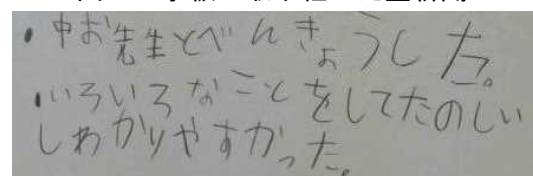 ・中お先生とべんきょうした。
・いろいろなことをしてたのしい
しわかりやすかった。